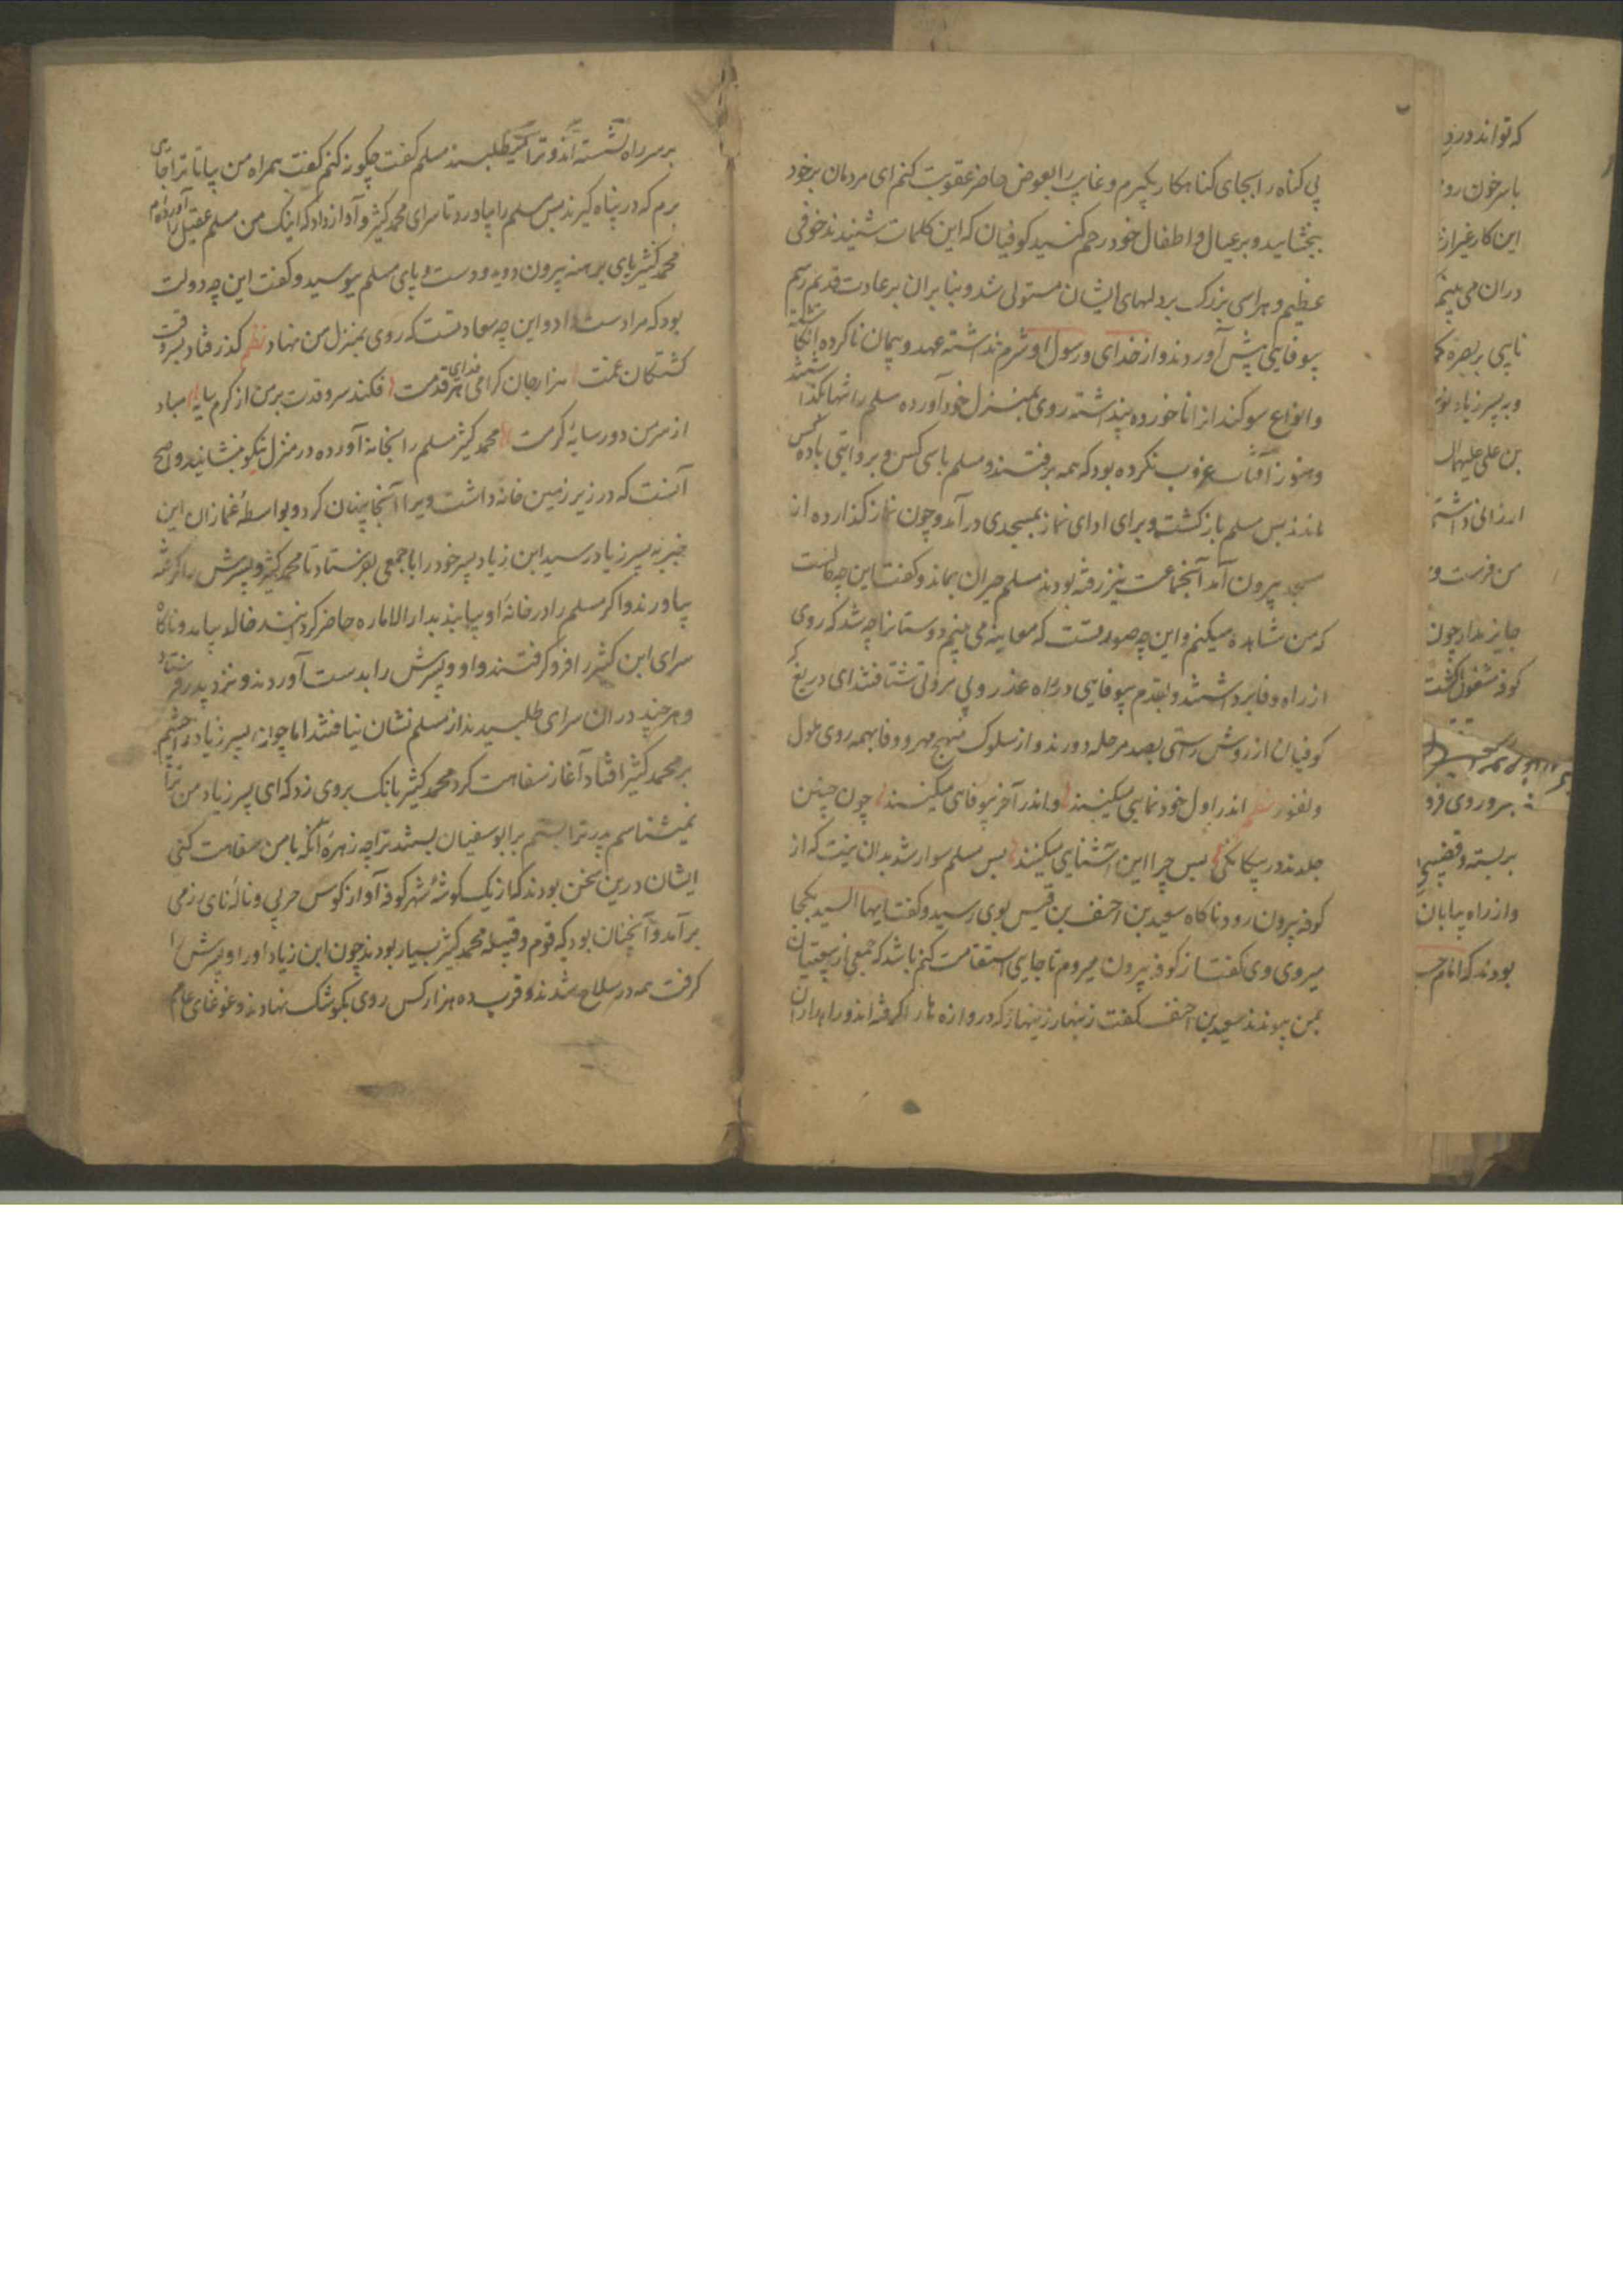 بی کناه را بجای کناهکار بکیرم و غایب را بعوض حاضر عقوبت کنم ای مردمان برخود
ببخشایید و بر عیال و اطفال خود رحم کنید کوفیان که این کلمات شنیدند خوفی
عظیم و هراسی بزرک بر دلهای ایشان مستولی شد و بنا بران بر عادت قدیم رسم
بیوفایی پیش آوردند و از خدای و رسول او شرم نداشته عهد و پیمان ناکرده انکاشتند
و انواع سوکند انرا ناخورده پنداشته روی بمنزل خود آورده مسلم را تنها بکذاشتند
و هنوز آفتاب غروب نکرده بود که همه برفتند و مسلم با سی کس و بروایتی با ده کس
ماند پس مسلم باز کشت و برای ادای نماز بمسجدی در آمد و چون نماز کذارده از
مسجد بیرون آمد آنجماعت نیز رفته بودند مسلم حیران بماند و کفت این چه حالست
که من مشاهده میکنم و این چه صورتست که معاینه می بینم دوستانرا چه شد که روی
از راه وفا برداشتند و بقدم بیوفایی در راه غدر و بی مروتی شتافتند ای دریغ که
کوفیان از روش راستی بصد مرحله دورند و از سلوک منهج مهر و وفا بهمه روی ملول
و نفور نظم اندر اول خود نمایی میکنند و اندر آخر بیوفایی میکنند چون چنین
جلدند در بیکانکی پس چرا این آشنایی میکنند پس مسلم سوار شد بدان نیت که از
کوفه بیرون رود ناکاه سعید بن احنف بن قیس بوی رسید و کفت ایها السید بکجا
میروی وی کفت از کوفه بیرون میروم تا جایی استقامت کنم باشد که جمعی از بیعتیان
بمن پیوندند سعید بن احنف کفت زینهار زینهار که دروازه ها را کرفته اند و راهداران
بر سر راه نشسته اند و ترا میطلبند مسلم کفت چکونه کنم کفت همراه من بیا تا ترا جایی
برم که در پناه کیرند پس مسلم را بیاورد تا سرای محمد کثیر و آواز داد که اینک من مسلم عقیل را آورده ام
محمد کثیر پای برهنه بیرون دوید و دست و پای مسلم ببوسید و کفت این چه دولت
بود که مرا دست داد و این چه سعادتست که روی بمنزل من نهاد نظم کذر فتاد بسروقت
کشتکان غمت هزار جان کرامی فدای هر قدمت فکند سرو قدت بر من از کرم سایه مباد
از سر من دور سایهٔ کرمت محمد کثیر مسلم را بخانه آورده در منزل نیکو بنشانید و اصح
آنست که در زیر زمین خانه داشت ویرا آنجا پنهان کرد و بواسطهٔ غمازان این
خبر به پسر زیاد رسید ابن زیاد پسر خود را با جمعی بفرستاد تا محمد کثیر و پسرش را کرفته
بیاورند و اکر مسلم را در خانهٔ او بیابند بدار الاماره حاضر کردانند خالد بیامد و ناکاه
سرای ابن کثیر را فرو کرفتند و او و پسرش را بدست آوردند و نزد پدر فرستاد
و هر چند در ان سرای طلبیدند از مسلم نشان نیافتند اما چون پسر زیاد را چشم
بر محمد کثیر افتاد آغاز سفاهت کرد محمد کثیر بانک بر وی زد که ای پسر زیاد من ترا
نمیشناسم پدر ترا بستم بر ابو سفیان بستند ترا چه زهرهٔ آنکه با من سفاهت کنی
ایشان درین سخن بودند که از یک کوشهٔ شهر کوفه آواز کوس حربی و نالهٔ نای رزمی
بر آمد و آنچنان بود که قوم و قبیلهٔ محمد کثیر بسیار بودند چون ابن زیاد او را و پسرش را
کرفت همه در سلاح شدند و قرب ده هزار کس روی بکوشک نهادند و غوغای عام
که تواند در
با سر خون
این کار غیر از
دران می بینم
بن علی علیهما
ارزانی داشته
من فرست و
جایز ندارد چون
کوفه مشغول کشت
بر و روی فرو
بر بسته و قضیبی
و از راه بیابان
بودند که امام